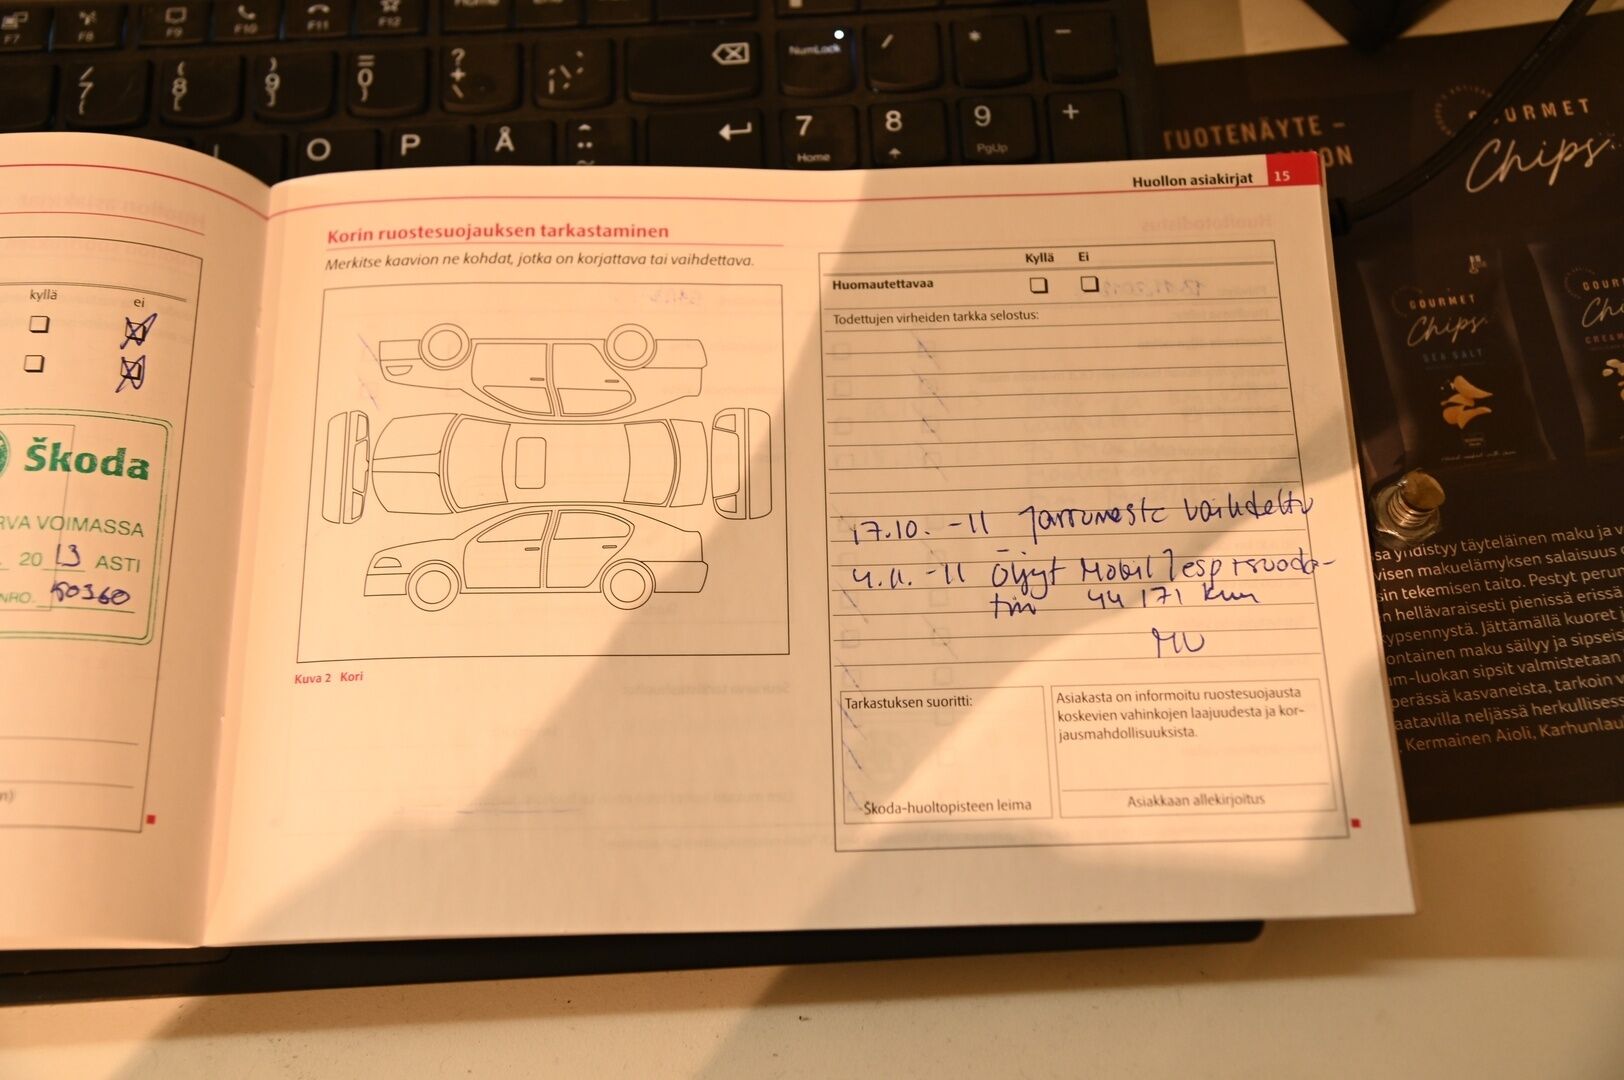 F7
F8
F9
F10
F11
F12
Home
NumLock
/
*
-
7
8
9
0
?
+
O
P
Å
7
Home
8
9
PgUp
+
TUOTENÄYTE –
GOURMET
Chips
GOURMET
Chips
SEA SALT
kyllä
ei
Škoda
VOIMASSA
20 13 ASTI
NRO. 50360
Huollon asiakirjat 15
Korin ruostesuojauksen tarkastaminen
Merkitse kaavion ne kohdat, jotka on korjattava tai vaihdettava.
Kuva 2 Kori
Kyllä Ei
Huomautettavaa
Todettujen virheiden tarkka selostus:
17.10. -11 Jarruneste vaihdettu
4.11. -11 Öljyt Mobil 1 esp + suoda-
tin 44 171 km
MU
Tarkastuksen suoritti:
Škoda-huoltopisteen leima
Asiakasta on informoitu ruostesuojausta
koskevien vahinkojen laajuudesta ja kor-
jausmahdollisuuksista.
Asiakkaan allekirjoitus
yhdistyy täyteläinen maku ja
makuelämyksen salaisuus
tekemisen taito. Pestyt
hellävaraisesti pienissä erissä
Jättämällä kuoret
maku säilyy ja
sipsit valmistetaan
kasvaneista, tarkoin
neljässä
Kermainen Aioli,